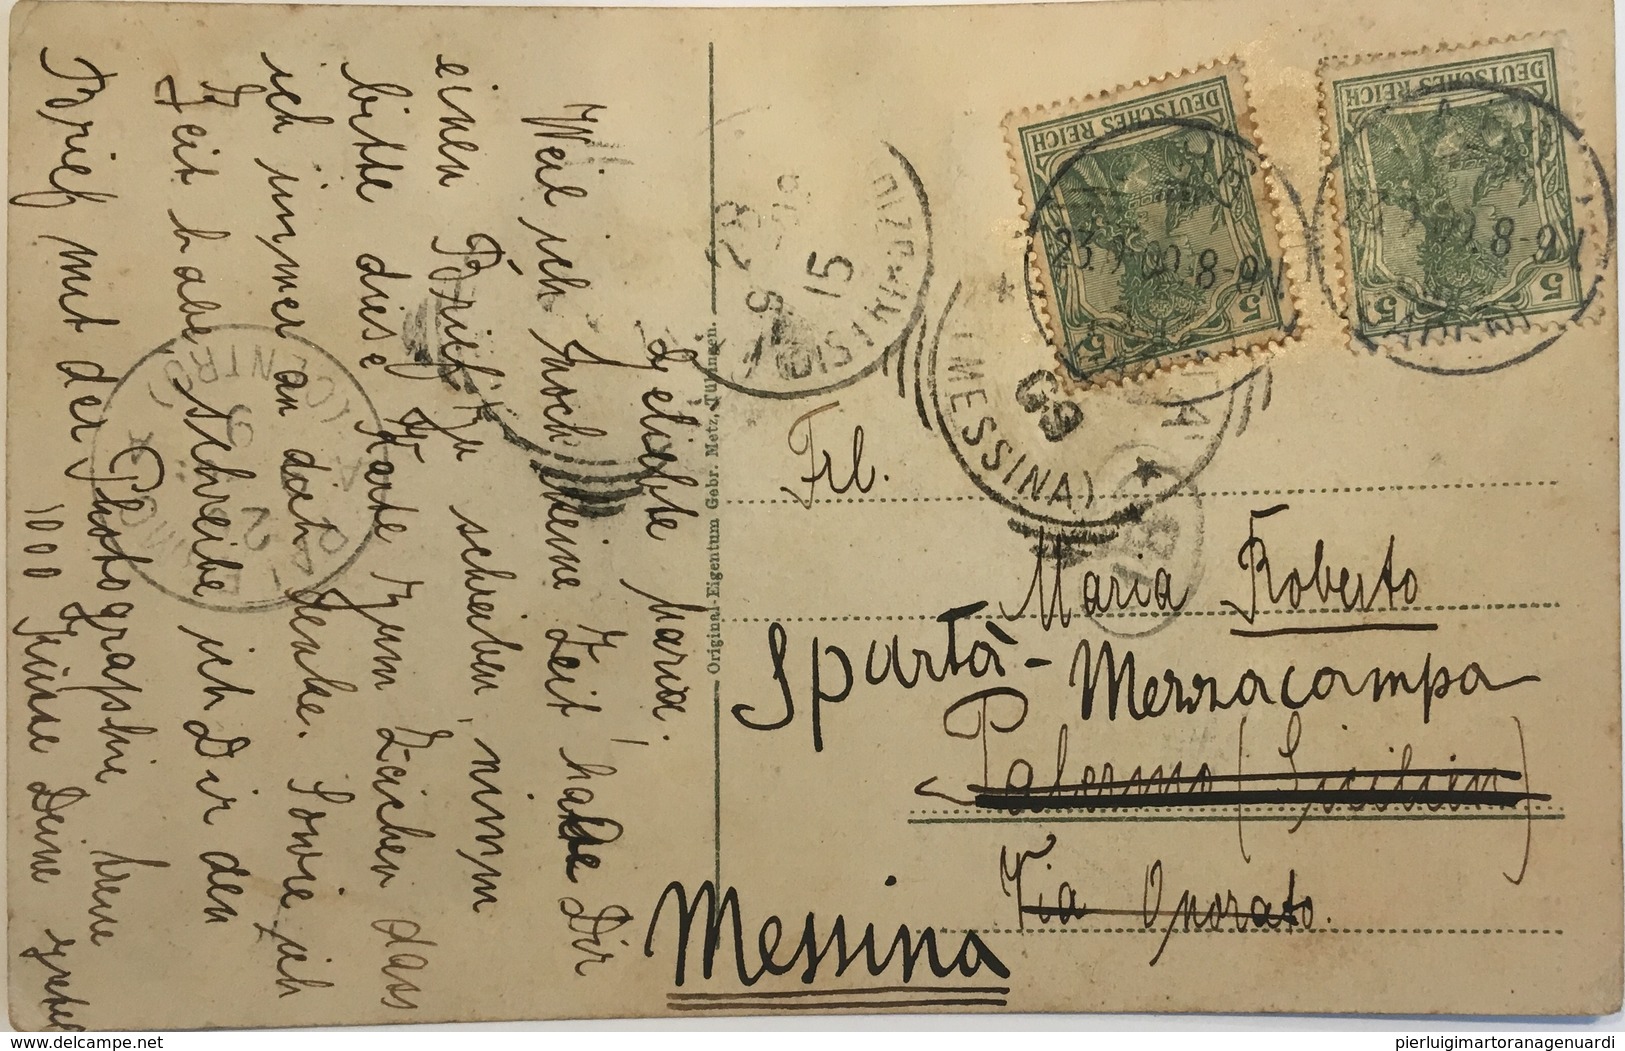 Geliebte Maria!
Weil ich noch keine Zeit habe Dir
einen Brief zu schreiben, nimm
bitte diese Karte zum Zeichen dass
ich immer an dich denke. Sowie ich
Zeit habe schreibe ich Dir den
Brief mit der Photographie
1000 Küsse Deine
Original-Eigentum Gebr. Metz, Tübingen.
DEUTSCHES REICH
5
5
DEUTSCHES REICH
5
5
23.9.09. 8-9V
23.9.09. 8-9V
DISTRIBUZIO
15
(MESSINA)
09
PALERMO
(CENTRO)
Frl.
Maria Roberto
Spartà - Mezzacampa
Palermo (Sicilien)
Via Onorato.
Messina
www.delcampe.net
pierluigimartoranagenuardi